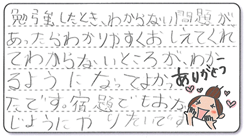 勉強したとき、わからない問題が
あったらわかりやすくおしえてくれ
てわからないところが、わか
るようになってよか
たです。宿題でもおな
じようにやりたいでｓ
ありがとう